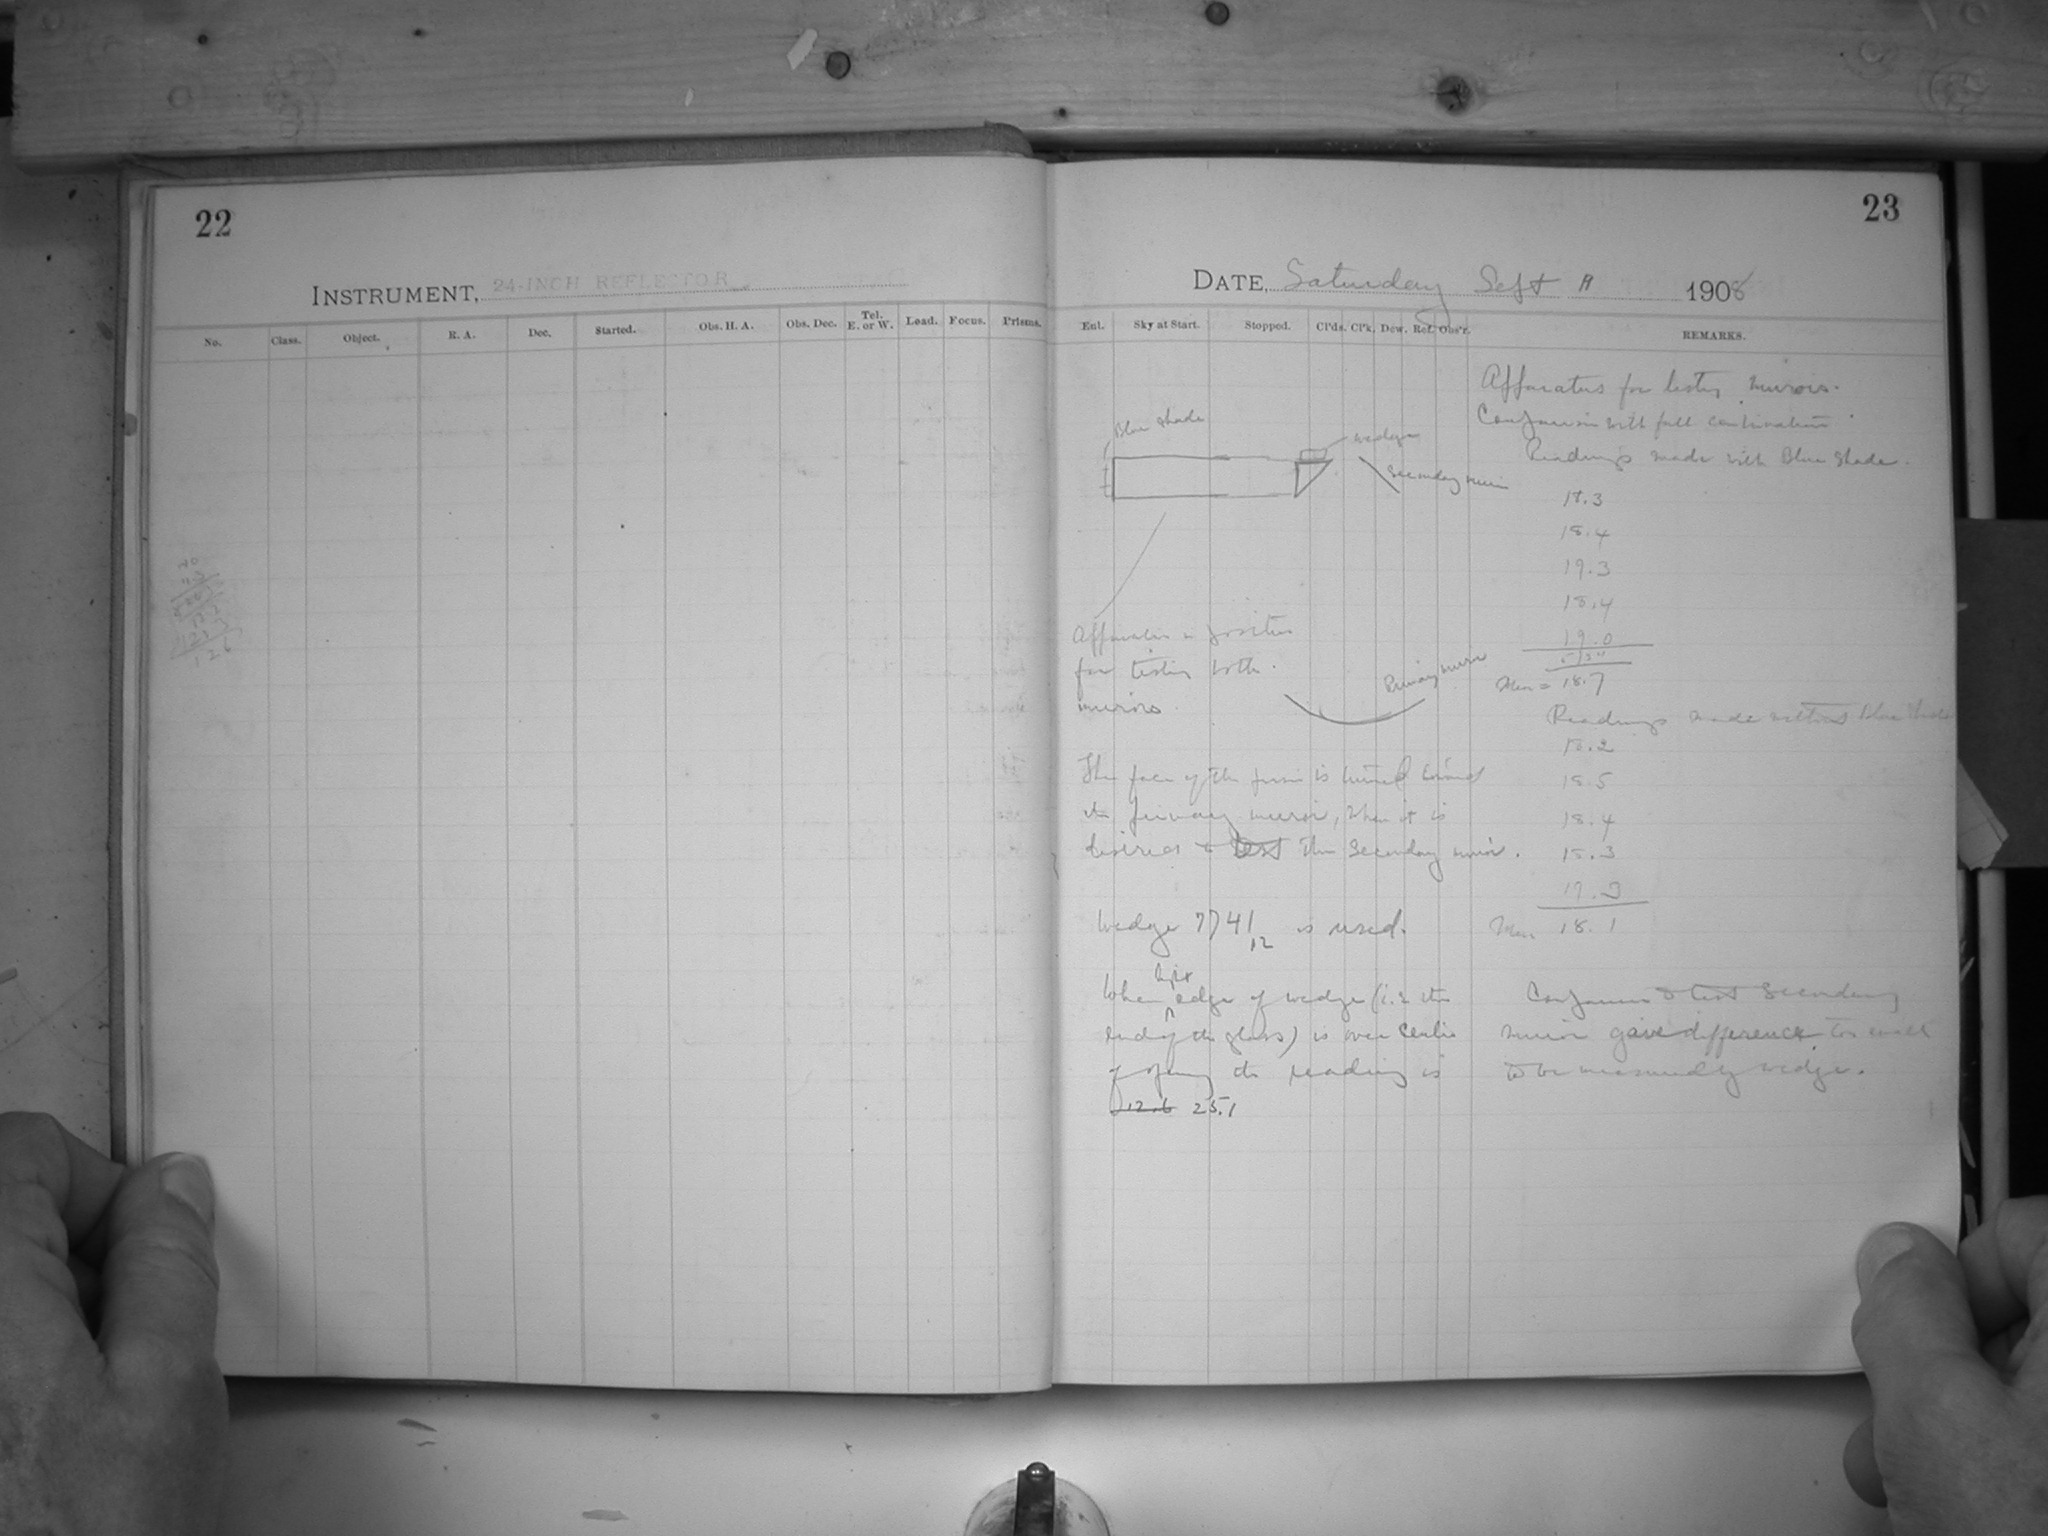 22
INSTRUMENT, 24-INCH REFLECTOR
No. Class. Object. R. A. Dec. Started. Obs. H. A. Obs. Dec. Tel. E. or W. Load. Focus. Prisms.
126
23
DATE, Saturday Sept 1908
Enl. Sky at Start. Stopped. Cl'ds. Cl'k. Dew. Ref. Obs'r. REMARKS.
Blue Shade
wedge
Secondary mirror
Apparatus in position
for testing both
mirrors.
Primary mirror
The face of the prism is turned toward
the primary mirror, when it is
desired to test the Secondary mirror.
Wedge 7741 12 is used.
When light edge of wedge (i.e. the
end of the glass) is over centre
of opening the reading is
12.6 25.1
Apparatus for testing mirrors.
Comparison with full combination.
Readings made with Blue Shade.
18.3
18.4
19.3
18.4
19.0
Mean = 18.7
Readings made without Blue Shade
18.2
18.5
18.4
18.3
17.3
Mean 18.1
Comparison to test Secondary
mirror gave difference too small
to be measured by wedge.